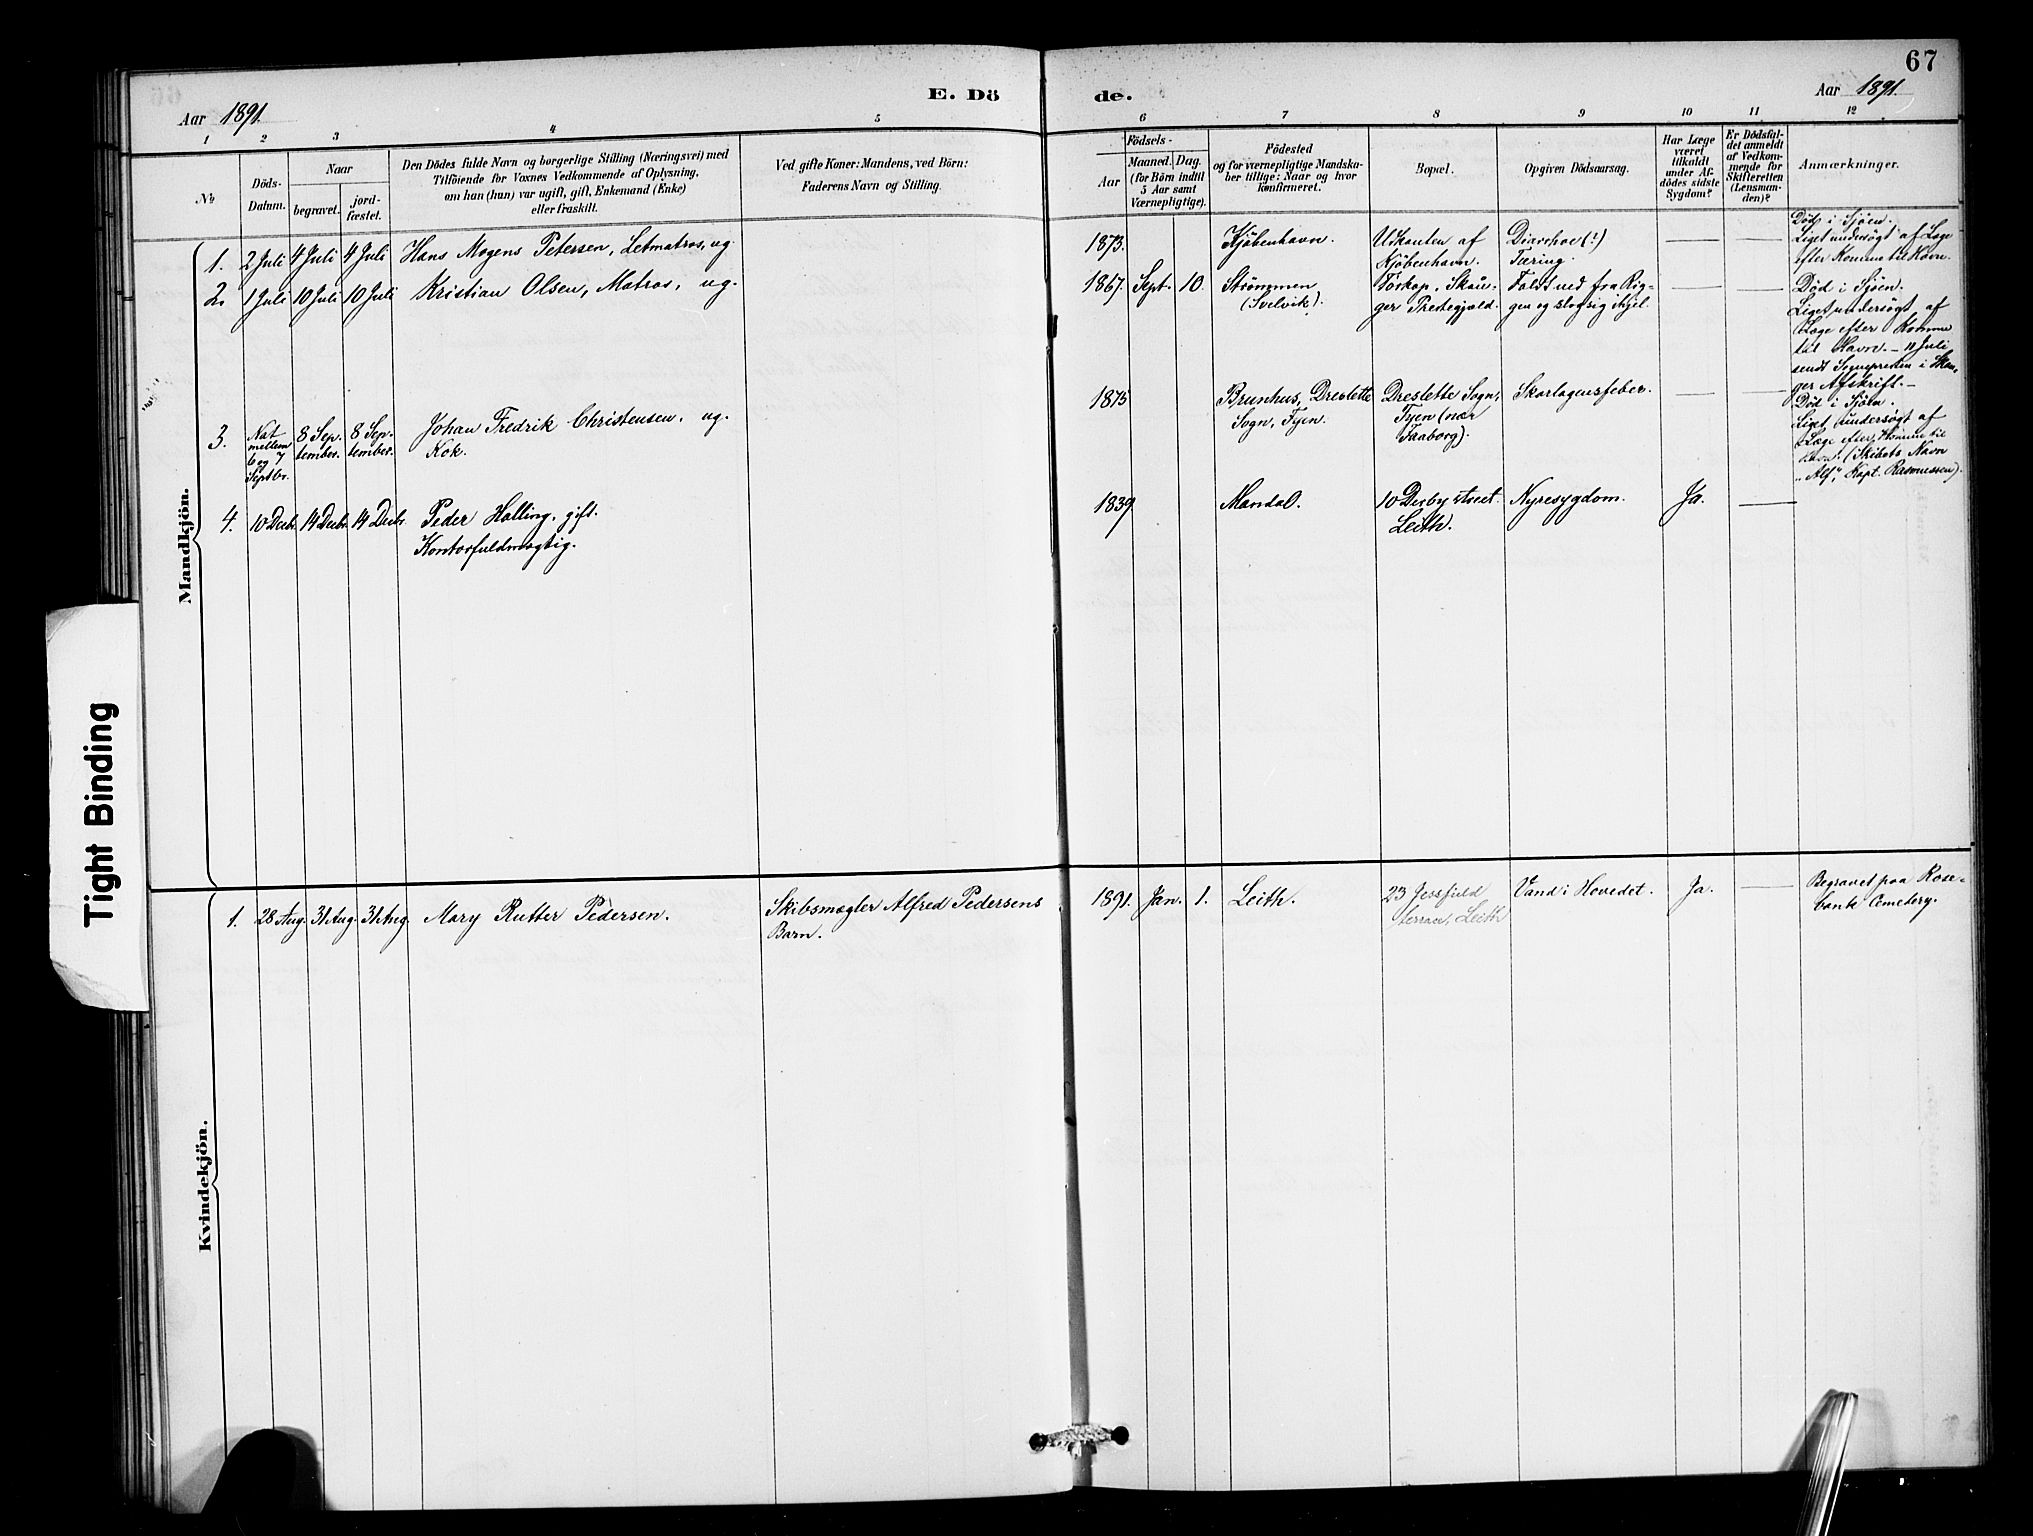 67
E. Dö
de.
Aar 1891.
Aar 1891.
1
2
3
4
5
6
7
8
9
10
11
12
No
Döds-
Datum.
Naar
begravet.
jord-
fæstet.
Den Dödes fulde Navn og borgerlige Stilling (Næringsvei) med
Tilföiende for Voxnes Vedkommende af Oplysning,
om han (hun) var ugift, gift, Enkemand (Enke)
eller fraskilt.
Ved gifte Koner: Mandens, ved Börn:
Faderens Navn og Stilling.
Födsels-
Aar
Maaned.
(for Börn indtil
5 Aar samt
Værnepligtige).
Dag.
Födested
og for værnepligtige Mandska-
ber tillige: Naar og hvor
konfirmeret.
Bopæl.
Opgiven Dödsaarsag.
Har Læge
været
tilkaldt
under Af-
dödes sidste
Sygdom?
Er Dödsfal-
det anmeldt
af Vedkom-
mende for
Skifteretten
(Lensman-
den)?
Anmærkninger.
Mandkjön.
1.
2 Juli
4 Juli
4 Juli
Hans Mogens Petersen, Letmatros, ug.
1873.
Kjøbenhavn.
Udkanten af
Kjøbenhavn.
Diarrhoe (?)
Tæring.
Død i Sjøen.
Liget undersøgt af Læge
efter Komme til Havn.
2.
1 Juli
10 Juli
10 Juli
Kristian Olsen, Matros, ug.
1867.
Sept.
10.
Strømmen
(Svelvik).
Forkop, Skau-
ger Prestegjæld.
Faldt ned fra Rig-
gen og slog sig ihjel.
Død i Sjøen.
Liget undersøgt af
Læge efter Komme
til Havn. - 11 Juli
sendt Sognepresten i Skou-
ger Afskrift. -
3.
Nat
mellem
6 og 7
Septbr.
8 Sep-
tember.
8 Sep-
tember.
Johan Fredrik Christensen, ug.
Kok.
1875
Brunhus, Dreslette
Sogn, Fyen.
Dreslette Sogn,
Fyen (nær
Faaborg).
Skarlagensfeber.
Død i Sjøen.
Liget undersøgt af
Læge efter Komme til
Havn. (Skibets Navn
„Alf", Kapt. Rasmussen).
4.
10 Decbr.
14 Decbr.
14 Decbr.
Peder Halling, gift.
Kontorfuldmægtig.
1839
Mandal.
10 Derby street.
Leith.
Nyresygdom.
Ja.
Kvindekjön.
1.
28 Aug.
31 Aug.
31 Aug.
Mary Rutter Pedersen.
Skibsmægler Alfred Pedersens
Barn.
1891.
Jan.
1.
Leith.
23
terrace, Leith
Vand i Hovedet.
Ja.
Begravet paa Rose-
bank Cemetery.
Tight Binding